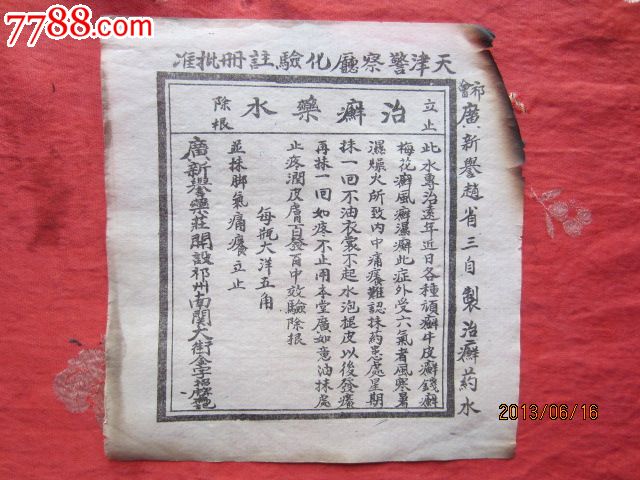 7788.com
天津警察廳化驗註冊批准
祁會
廣新譽趙省三自製治癬葯水
立止
治癬藥水
除根
此水專治遠年近日各種頑癬牛皮癬錢癬
梅花癬風癬濕癬此症外受六氣者風寒暑
濕燥火所致內中痛癢難認抹葯患處星期
抹一回不油衣裳不起水泡褪皮以後發癢
再抹一回如疼不止用本堂廣如意油抹處
止疼潤皮膚百發百中效驗除根
每瓶大洋五角
並抹脚氣痛癢立止
廣新譽藥莊開設祁州南關大街金字招牌
2013/06/16